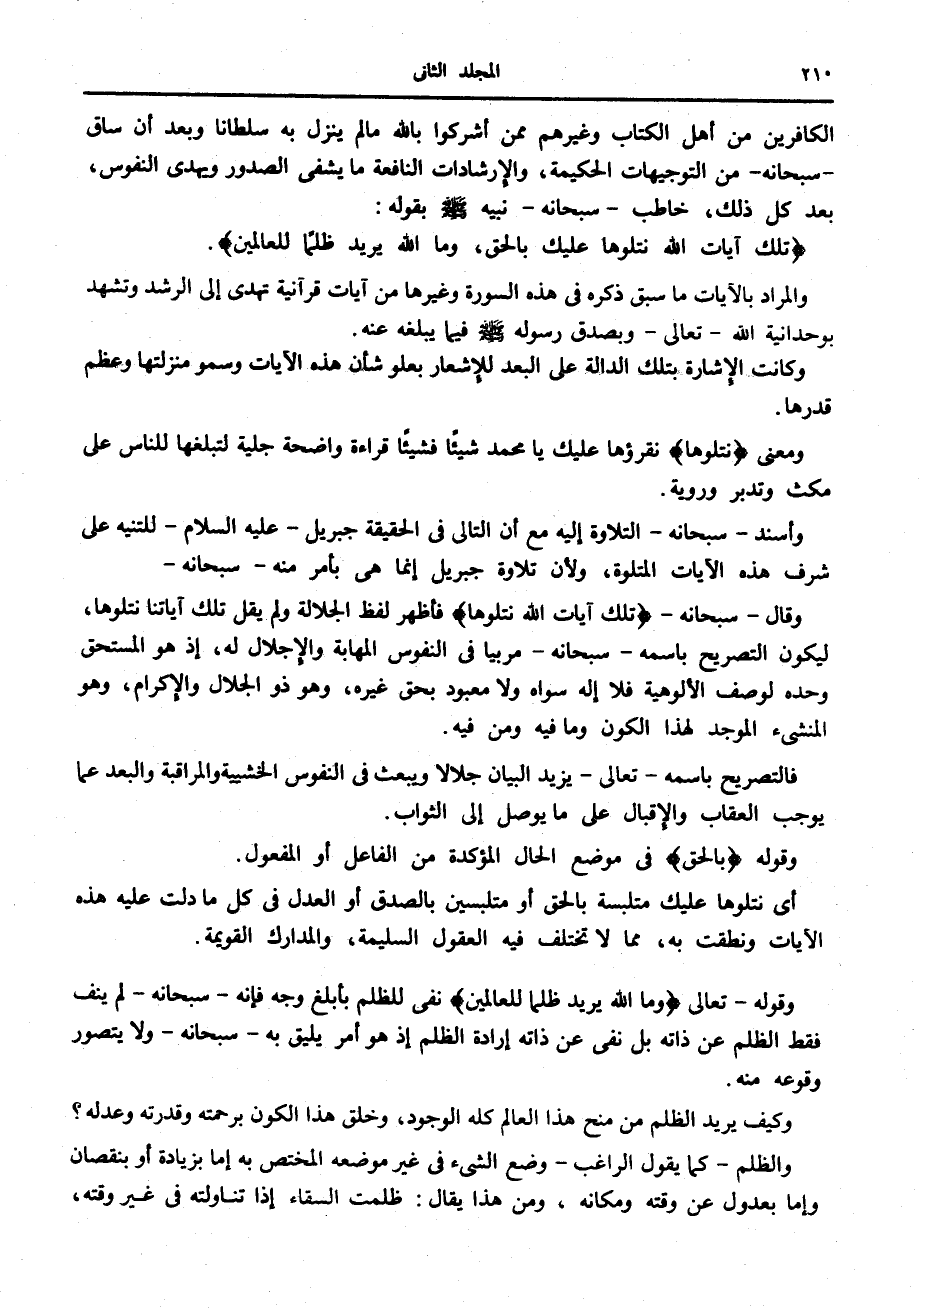 ٢١٠ المجلد الثانى
الكافرين من أهل الكتاب وغيرهم ممن أشركوا بالله مالم ينزل به سلطانا وبعد أن ساق
-سبحانه- من التوجيهات الحكيمة، والإرشادات النافعة ما يشفى الصدور ويهدى النفوس،
بعد كل ذلك، خاطب - سبحانه - نبيه ﷺ بقوله :
﴿تلك آيات الله نتلوها عليك بالحق، وما الله يريد ظلمًا للعالمين﴾.
والمراد بالآيات ما سبق ذكره فى هذه السورة وغيرها من آيات قرآنية تهدى إلى الرشد وتشهد
بوحدانية الله - تعالى - وبصدق رسوله ﷺ فيما يبلغه عنه.
وكانت الإشارة بتلك الدالة على البعد للإشعار بعلو شأن هذه الآيات وسمو منزلتها وعظم
قدرها.
ومعنى ﴿نتلوها﴾ نقرؤها عليك يا محمد شيئًا فشيئًا قراءة واضحة جلية لتبلغها للناس على
مكث وتدبر وروية.
وأسند - سبحانه - التلاوة إليه مع أن التالى فى الحقيقة جبريل - عليه السلام - للتنيه على
شرف هذه الآيات المتلوة، ولأن تلاوة جبريل إنما هى بأمر منه - سبحانه -
وقال - سبحانه - ﴿تلك آيات الله نتلوها﴾ فأظهر لفظ الجلالة ولم يقل تلك آياتنا نتلوها،
ليكون التصريح باسمه - سبحانه - مربيا فى النفوس المهابة والإجلال له، إذ هو المستحق
وحده لوصف الألوهية فلا إله سواه ولا معبود بحق غيره، وهو ذو الجلال والإكرام، وهو
المنشىء الموجد لهذا الكون وما فيه ومن فيه.
فالتصريح باسمه - تعالى - يزيد البيان جلالا ويبعث فى النفوس الخشيية والمراقبة والبعد عما
يوجب العقاب والإقبال على ما يوصل إلى الثواب.
وقوله ﴿بالحق﴾ فى موضع الحال المؤكدة من الفاعل أو المفعول.
أى نتلوها عليك متلبسة بالحق أو متلبسين بالصدق أو العدل فى كل ما دلت عليه هذه
الآيات ونطقت به، مما لا تختلف فيه العقول السليمة، والمدارك القويمة.
وقوله - تعالى ﴿وما الله يريد ظلما للعالمين﴾ نفى للظلم بأبلغ وجه فإنه - سبحانه - لم ينف
فقط الظلم عن ذاته بل نفى عن ذاته إرادة الظلم إذ هو أمر يليق به - سبحانه - ولا يتصور
وقوعه منه.
وكيف يريد الظلم من منح هذا العالم كله الوجود، وخلق هذا الكون برحمته وقدرته وعدله؟
والظلم - كما يقول الراغب - وضع الشىء فى غير موضعه المختص به إما بزيادة أو بنقصان
وإما بعدول عن وقته ومكانه ، ومن هذا يقال : ظلمت السقاء إذا تناولته فى غير وقته،